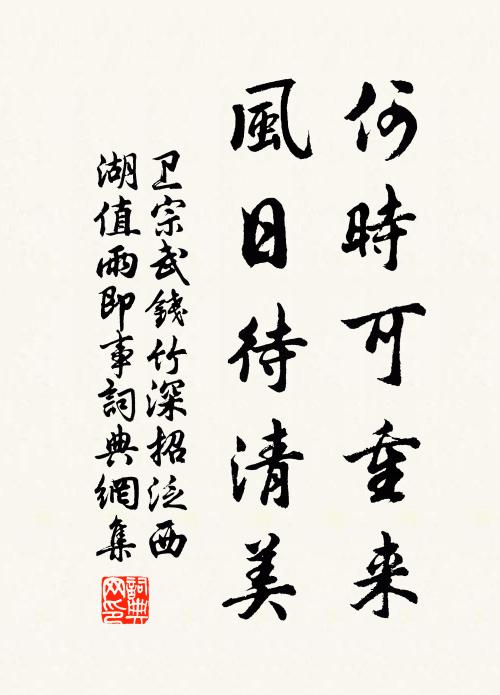 何時可重来
風日待清美
卫宗武錢竹深招泛西
湖值雨即事詞典網集
詞典網印